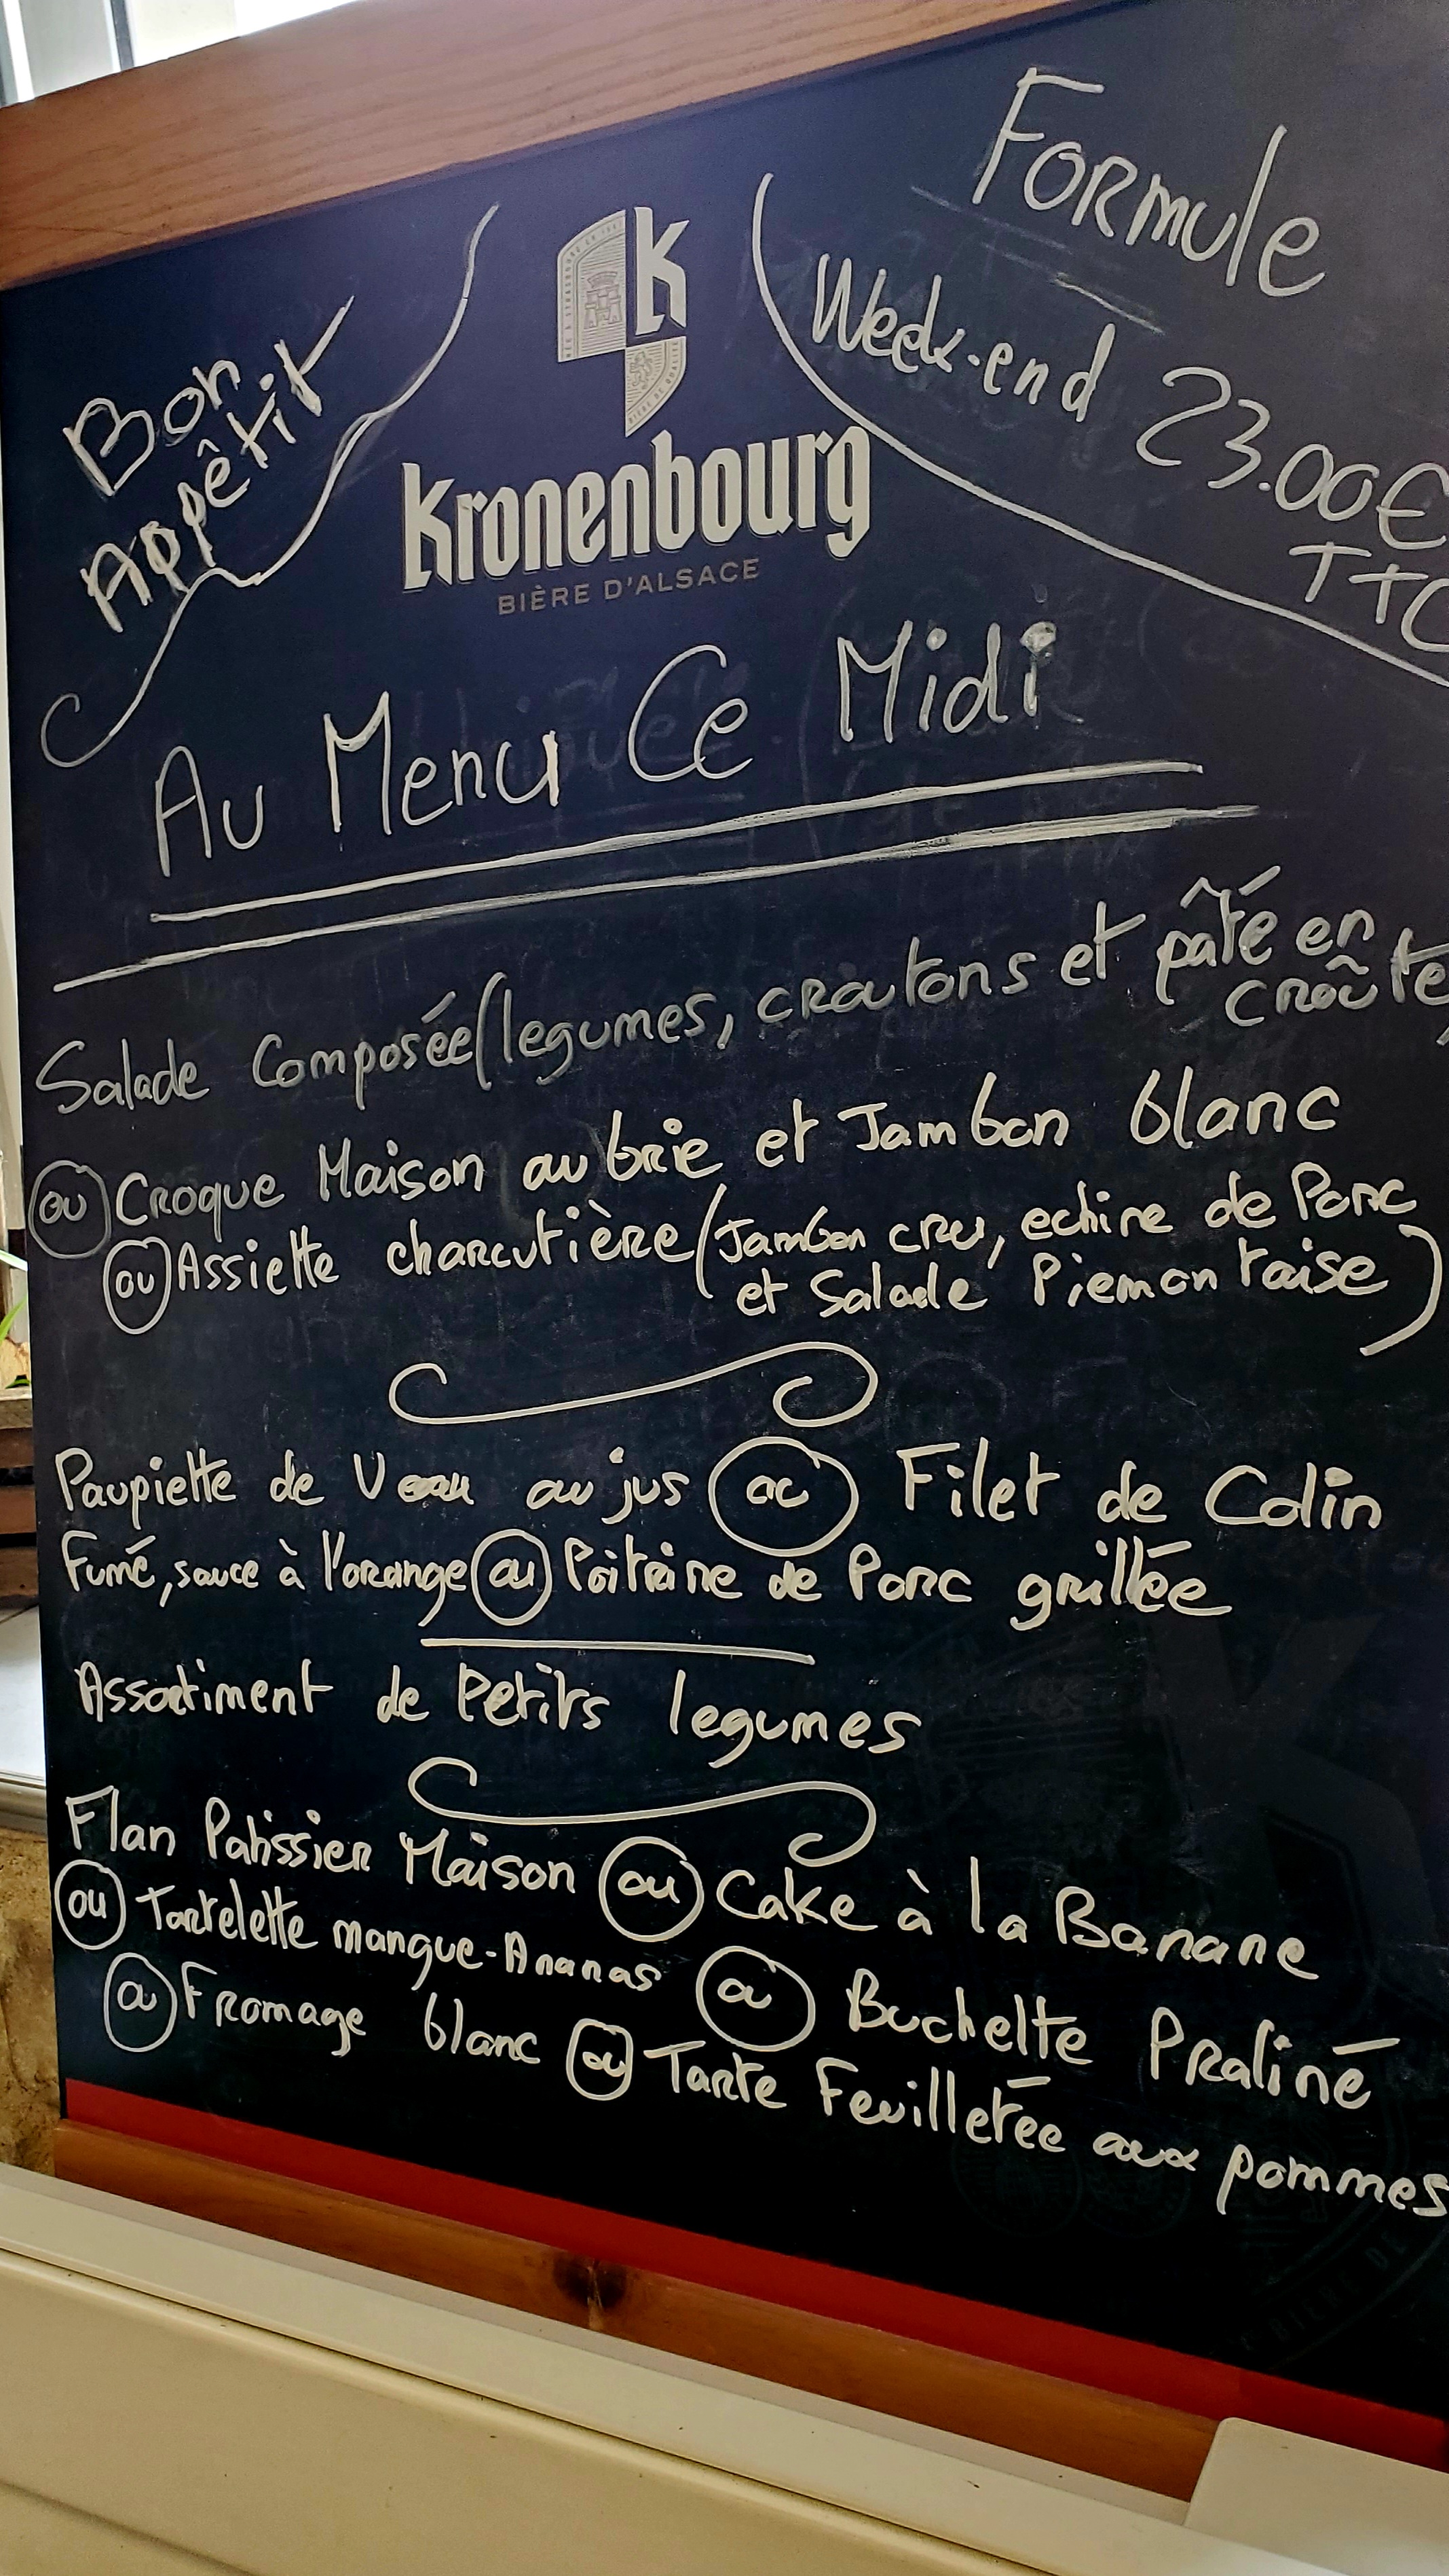 Formule
Week-end 23.00€
TTC
Bon
Appêtit
K
Kronenbourg
BIÈRE D'ALSACE
Au Menu Ce Midi
Salade Composée (legumes, croutons et pâté en
croûte,
ou Croque Maison au brie et Jambon blanc
ou Assiette charcutière (Jambon cru, echine de Porc
et Salade Piemontaise)
Paupiette de Veau au jus ou Filet de Colin
Fumé, sauce à l'orange ou Poitrine de Porc grillée
Assortiment de Petits legumes
Flan Patissier Maison ou Cake à la Banane
ou Tartelette mangue-Ananas ou Buchette Praliné
ou Fromage blanc ou Tarte Feuilletée aux pommes